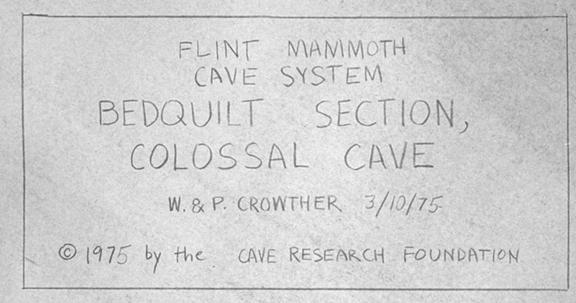 FLINT MAMMOTH
CAVE SYSTEM
BEDQUILT SECTION,
COLOSSAL CAVE
W. & P. CROWTHER 3/10/75
© 1975 by the CAVE RESEARCH FOUNDATION